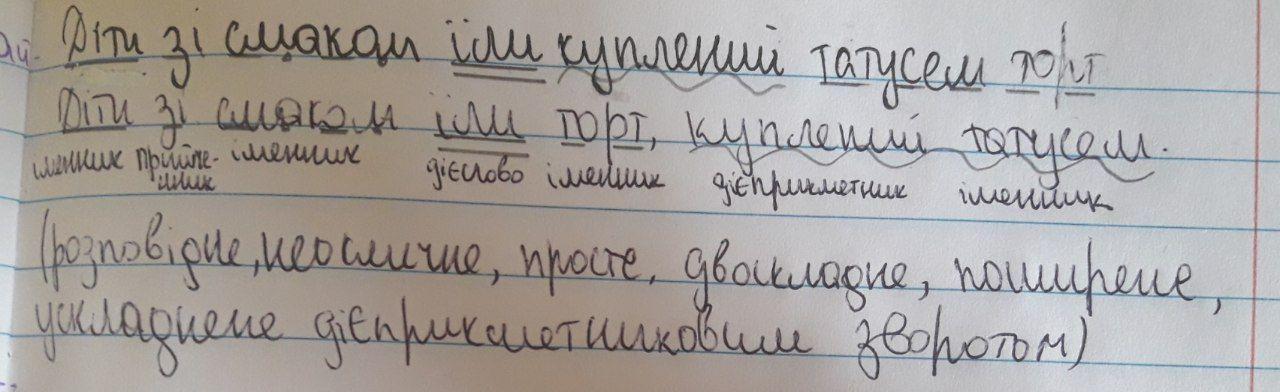 Діти зі смаком їли куплений татусем торт
Діти зі смаком їли торт, куплений татусем.
іменник прийме- іменник дієслово іменник дієприкметник іменник
нник
(розповідне, неокличне, просте, двоскладне, поширене,
ускладнене дієприкметниковим зворотом)